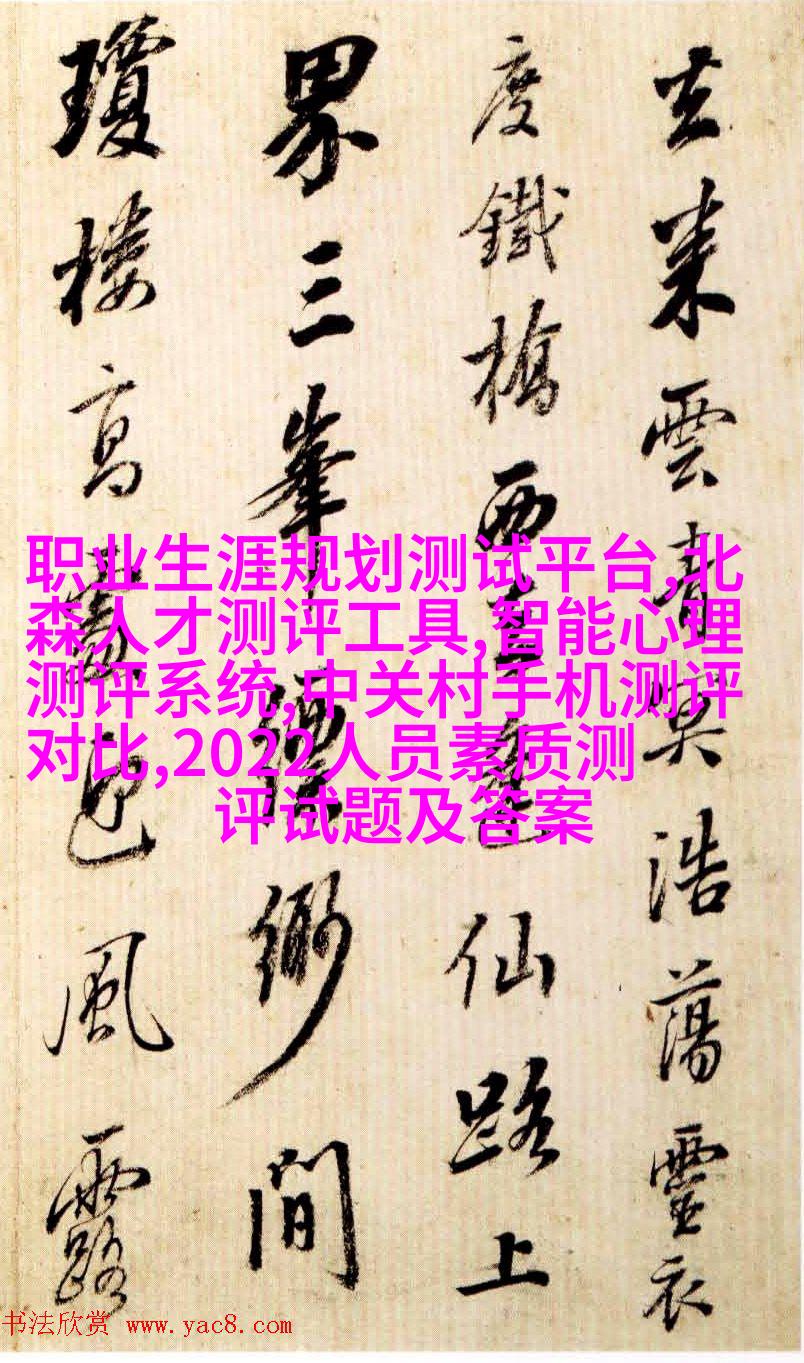 雲青冥浩蕩靈衣
度鐵橋西仙路上
界三峯縹緲間
瓊樓高處風露
职业生涯规划测试平台,北
森人才测评工具,智能心理
测评系统,中关村手机测评
对比,2022人员素质测
评试题及答案
书法欣赏 www.yac8.com